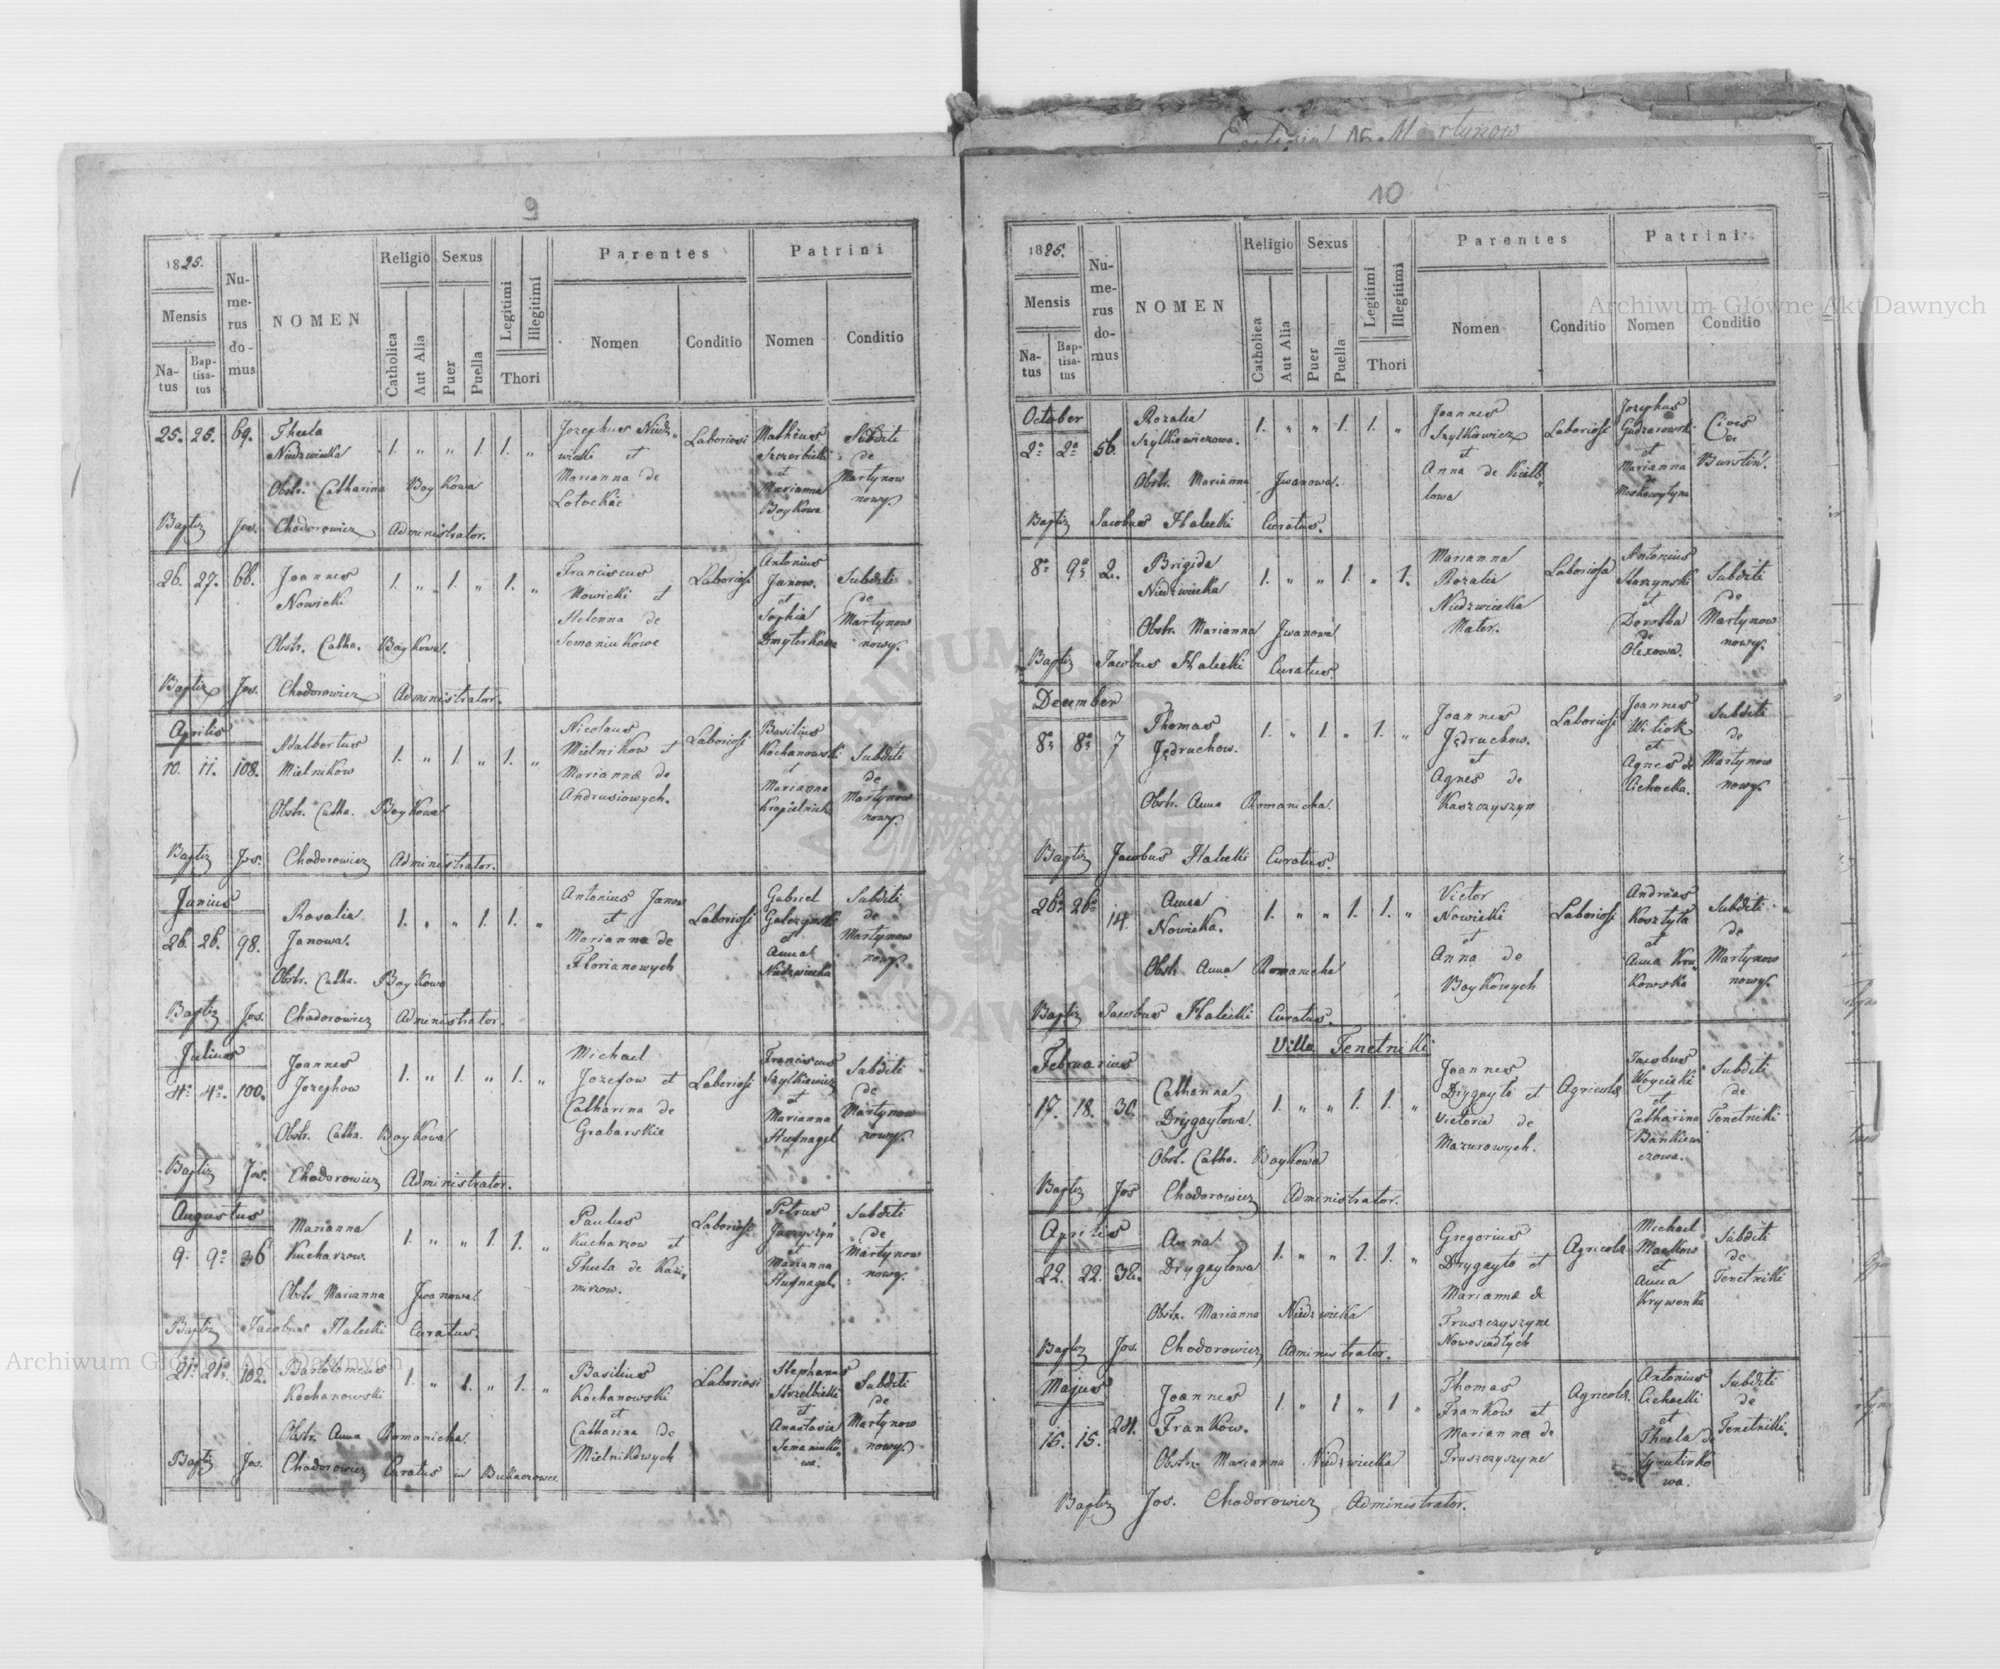 Martynow
9
1825.
Mensis
Natus
Baptisatus
Numerus domus
NOMEN
Religio
Catholica
Aut Alia
Sexus
Puer
Puella
Legitimi
Illegitimi
Thori
Parentes
Nomen
Conditio
Patrini
Nomen
Conditio
25. 25. 69. Thecla Niedzwiecka 1. „ „ 1. 1. „ Josephus Niedzwiecki et Marianna de Lotockie Laboriosi Matheus Szczerbicki et Marianna Boykowa Subditi de Martynow nowy.
Obstr. Catharina Boykowa
Baptiz Jos. Chodorowicz Administrator.
26. 27. 66. Joannes Nowicki 1. „ 1. „ 1. „ Franciscus Nowicki et Helenna de Semaniukowe Laboriosi Antonius Janow. et Sophia Dmyterkowa Subditi de Martynow nowy.
Obstr. Catha. Boykowa.
Baptiz Jos. Chodorowicz Administrator.
Aprilis
10. 11. 108. Adalbertus Mielnikow 1. „ 1. „ 1. „ Nicolaus Mielnikow et Marianna de Andrusiowych. Laboriosi Basilius Kochanowski et Marianna Subditi de Martynow nowy.
Obstr. Catha. Boykowa
Baptiz Jos. Chodorowicz Administrator.
Junius
26. 26. 98. Rosalia Janowa. 1. „ „ 1. 1. „ Antonius Janow et Marianna de Florianowych Laboriosi Gabriel et Anna Niedzwiecka Subditi de Martynow nowy.
Obstr. Catha. Boykowa
Baptiz Jos. Chodorowicz Administrator.
Julius
4a 4a 100. Joannes Jozephow 1. „ 1. „ 1. „ Michael Jozefow et Catharina de Grabarskie Laboriosi Franciscus Szytkiewicz et Marianna Hufnagel Subditi de Martynow nowy.
Obstr. Catha. Boykowa
Baptiz Jos. Chodorowicz Administrator.
Augustus
9. 9a 36 Marianna Kucharzow. 1. „ „ 1. 1. „ Paulus Kucharzow et Thecla de Kazimirzow. Laboriosi Petrus et Marianna Hufnagel Subditi de Martynow nowy.
Obstr. Marianna Jwanowa.
Baptiz Jacobus Halecki Curatus.
21a 21a 102. Bartolomeus Kochanowski 1. „ 1. „ 1. „ Basilius Kochanowski et Catharina de Mielnikowych Laboriosi Stephanus Strzelbicki et Anastasia Semaniukowa. Subditi de Martynow nowy.
Obstr. Anna Romanicha.
Baptiz Jos. Chodorowicz Curatus in Bukaczowce.
10
1825.
Mensis
Natus
Baptisatus
Numerus domus
NOMEN
Religio
Catholica
Aut Alia
Sexus
Puer
Puella
Legitimi
Illegitimi
Thori
Parentes
Nomen
Conditio
Patrini
Nomen
Conditio
October
2a 2a 56. Rozalia Szytkiewiczowa. 1. „ „ 1. 1. „ Joannes Szytkiewicz et Anna de Laboriosi Josephus et Marianna Cives de Burstin.
Obstr. Marianna Jwanowa.
Baptiz Jacobus Halecki Curatus.
8a 9a 2. Brigida Niedzwiecka 1. „ „ 1. „ 1. Marianna Rozalia Niedzwiecka Mater. Laboriosa Antonius et Dorotha de Olexowa. Subditi de Martynow nowy.
Obstr. Marianna Jwanowa
Baptiz Jacobus Halecki Curatus.
December
8a 8a 7 Thomas Jędruchow. 1. „ 1. „ 1. „ Joannes Jędruchow. et Agnes de Kaszczyszyn Laboriosi Joannes Witiok et Agnes de Cichocka. Subditi de Martynow nowy.
Obstr. Anna Romanicha.
Baptiz Jacobus Halecki Curatus.
26a 26a 14. Anna Nowicka. 1. „ „ 1. 1. „ Victor Nowicki et Anna de Boykowych Laboriosi Andreas Kosztyla et Anna Krukowska Subditi de Martynow nowy.
Obstr. Anna Romanicha
Baptiz Jacobus Halecki Curatus.
Villa Tenetniki
Februarius
17. 18. 30. Catharina Drygaytowa. 1. „ „ 1. 1. „ Joannes Drygayto et Victoria de Mazurowych. Agricolæ Jacobus Woycicki et Catharina Bankiewiczowa. Subditi de Tenetniki
Obst. Catha. Boykowa
Baptiz Jos Chodorowicz Administrator.
Aprilis
22. 22. 32. Anna Drygaytowa 1. „ „ 1. 1. „ Gregorius Drygayto et Marianna de Truszczyszyne Nowosiadlych Agricolæ Michael Maćkow et Anna Krywenka Subditi de Tenetniki
Obstr. Marianna Niedzwiecka
Baptiz Jos. Chodorowicz Administrator.
Majus
15. 15. 24. Joannes Frankow. 1 „ 1 „ 1 „ Thomas Frankow et Marianna de Truszczyszyne Agricolæ Antonius Cichocki et Thecla Subditi de Tenetniki.
Obstr. Marianna Niedzwiecka
Baptiz Jos. Chodorowicz Administrator.
Archiwum Główne Akt Dawnych
Archiwum Główne Akt Dawnych